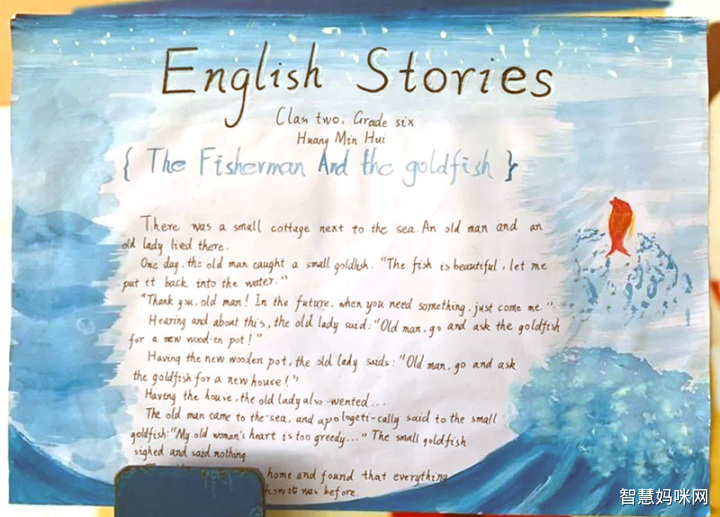 English Stories
Class two, Grade six
Huang Min Hui
{ The Fisherman And the goldfish }
There was a small cottage next to the sea. An old man and an
old lady lived there.
One day, the old man caught a small goldfish. "The fish is beautiful, let me
put it back into the water."
"Thank you, old man! In the future, when you need something, just come me."
Hearing and about this, the old lady said: "Old man, go and ask the goldfish
for a new wood-en pot!"
Having the new wooden pot, the old lady saids: "Old man, go and ask
the goldfish for a new house!"
Having the house, the old lady also wented...
The old man came to the sea, and apologetti-cally said to the small
goldfish: "My old woman's heart is too greedy..." The small goldfish
sighed and said nothing.
home and found that everything
was before.
智慧妈咪网